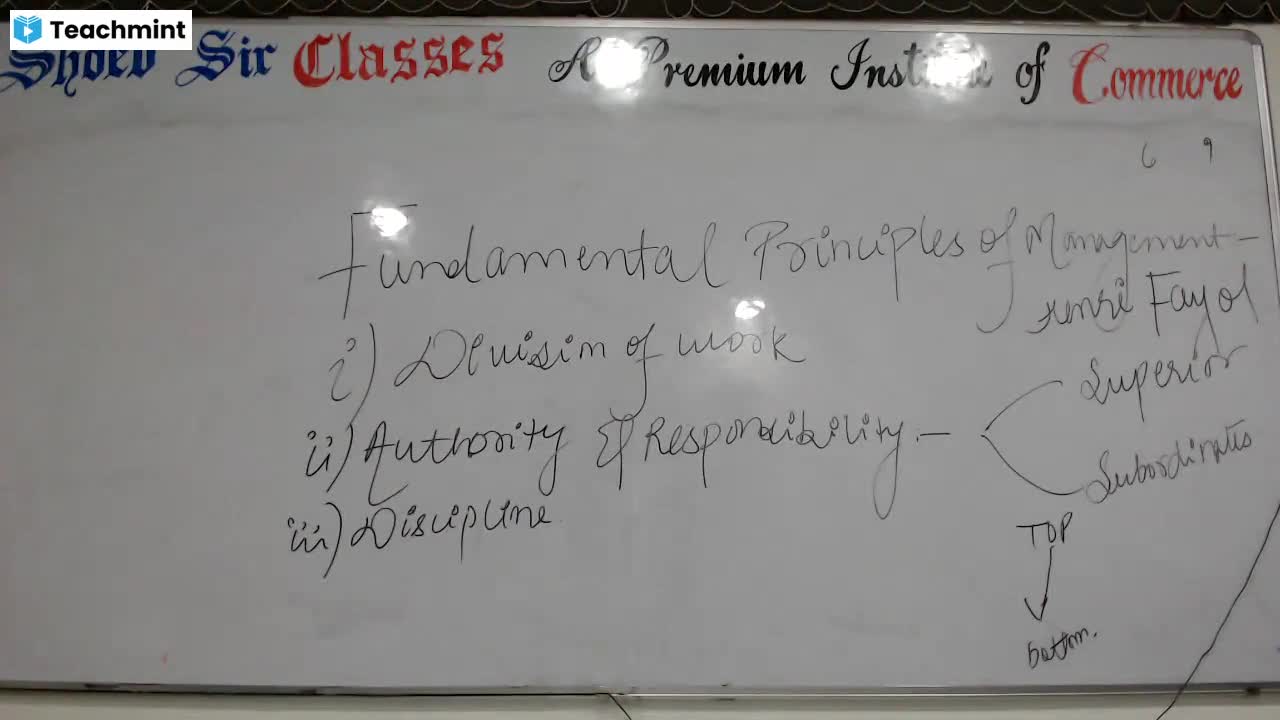 Teachmint
Shoeb Sir Classes A Premium Institute of Commerce
6 9
Fundamental Principles of Management -
Henri Fayol
i) Division of work
ii) Authority & Responsibility. - Superior
Subordinates
iii) Discipline
TOP
bottom.